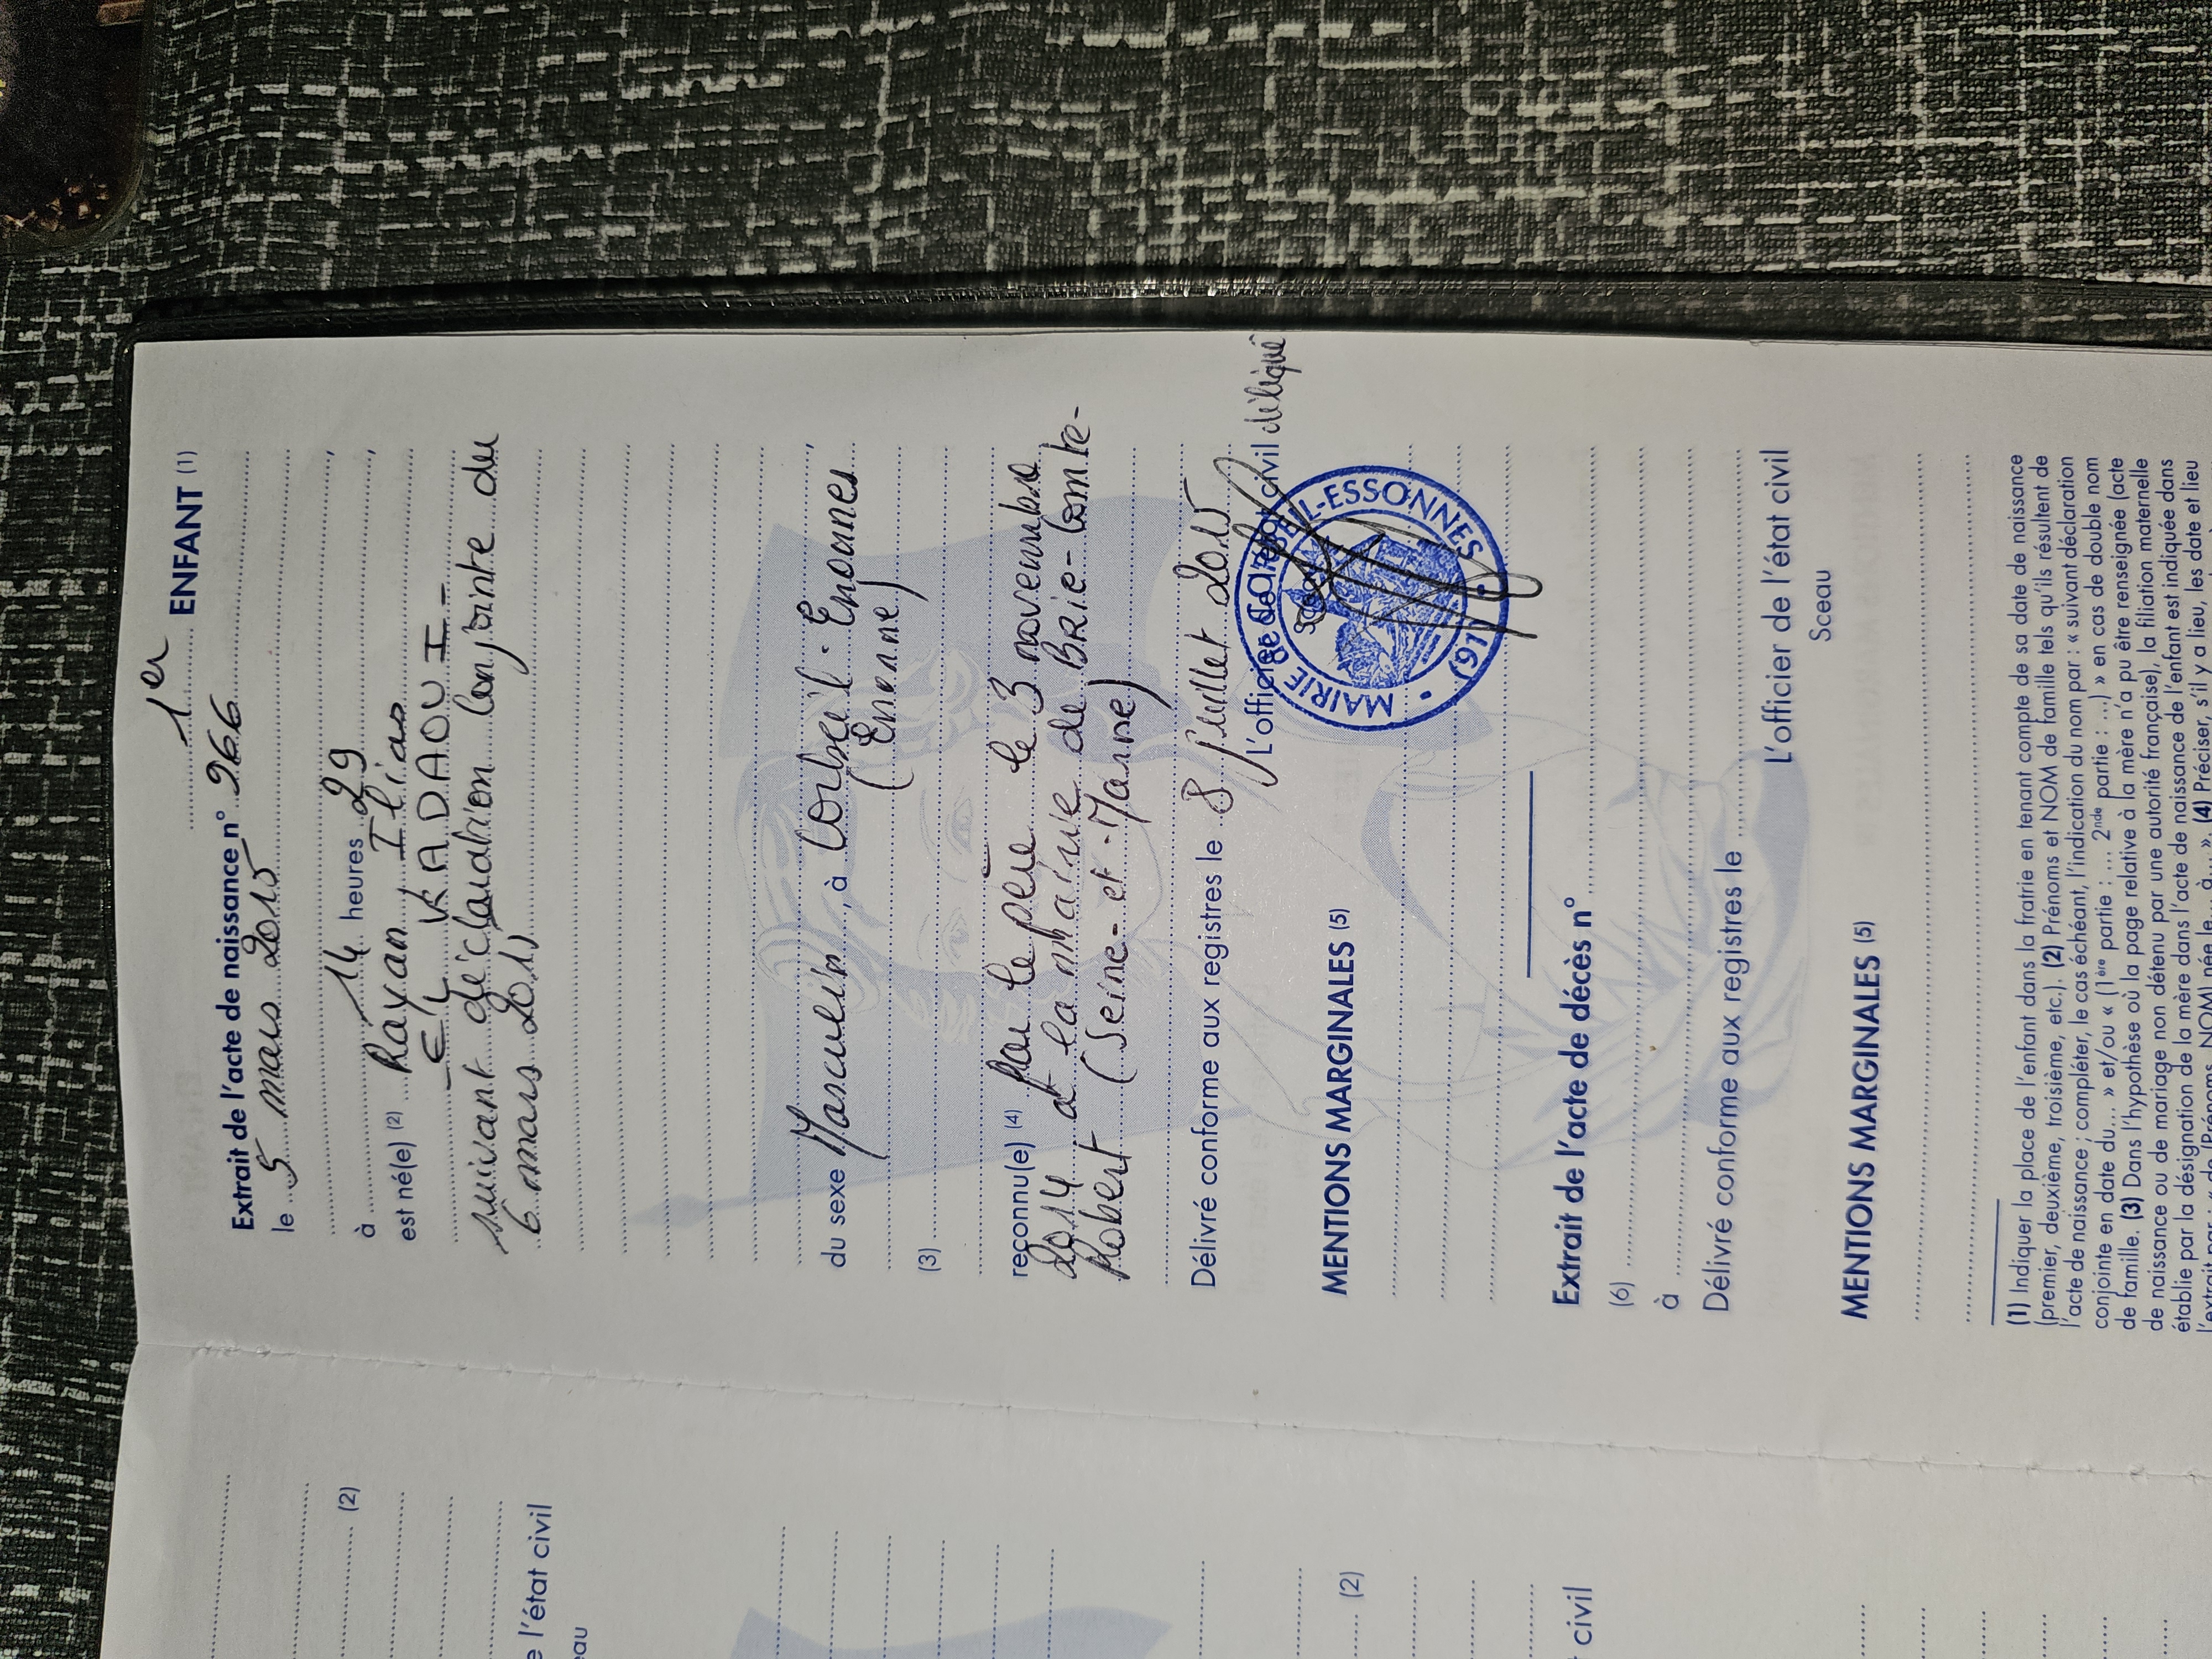 1er ENFANT (1)
Extrait de l'acte de naissance n° 266
le 5 mars 2015
à 14 heures 29
est né(e) (2) Rayan, Ilias
EL KADAOUI -
suivant déclaration conjointe du
6 mars 2015
du sexe Masculin, à Corbeil-Essonnes
(Essonne)
(3)
reconnu(e) (4) par le père le 3 novembre
2014 à la mairie de Brie-Comte-
Robert (Seine-et-Marne)
Délivré conforme aux registres le 8 juillet 2015
L'officier de l'état civil délégué
Sceau
MAIRIE DE CORBEIL-ESSONNES
(91)
MENTIONS MARGINALES (5)
Extrait de l'acte de décès n°
(6)
à
Délivré conforme aux registres le
L'officier de l'état civil
Sceau
MENTIONS MARGINALES (5)
(1) Indiquer la place de l'enfant dans la fratrie en tenant compte de sa date de naissance
(premier, deuxième, troisième, etc.). (2) Prénoms et NOM de famille tels qu'ils résultent de
l'acte de naissance ; compléter, le cas échéant, l'indication du nom par : « suivant déclaration
conjointe en date du... » et/ou « (1ère partie : .... 2nde partie : ...) » en cas de double nom
de famille. (3) Dans l'hypothèse où la page relative à la mère n'a pu être renseignée (acte
de naissance ou de mariage non détenu par une autorité française), la filiation maternelle
établie par la désignation de la mère dans l'acte de naissance de l'enfant est indiquée dans
l'extrait par : « de [Prénoms NOM] née le... à... » (4) Préciser, s'il y a lieu, les date et lieu
(2)
e l'état civil
eau
(2)
civil